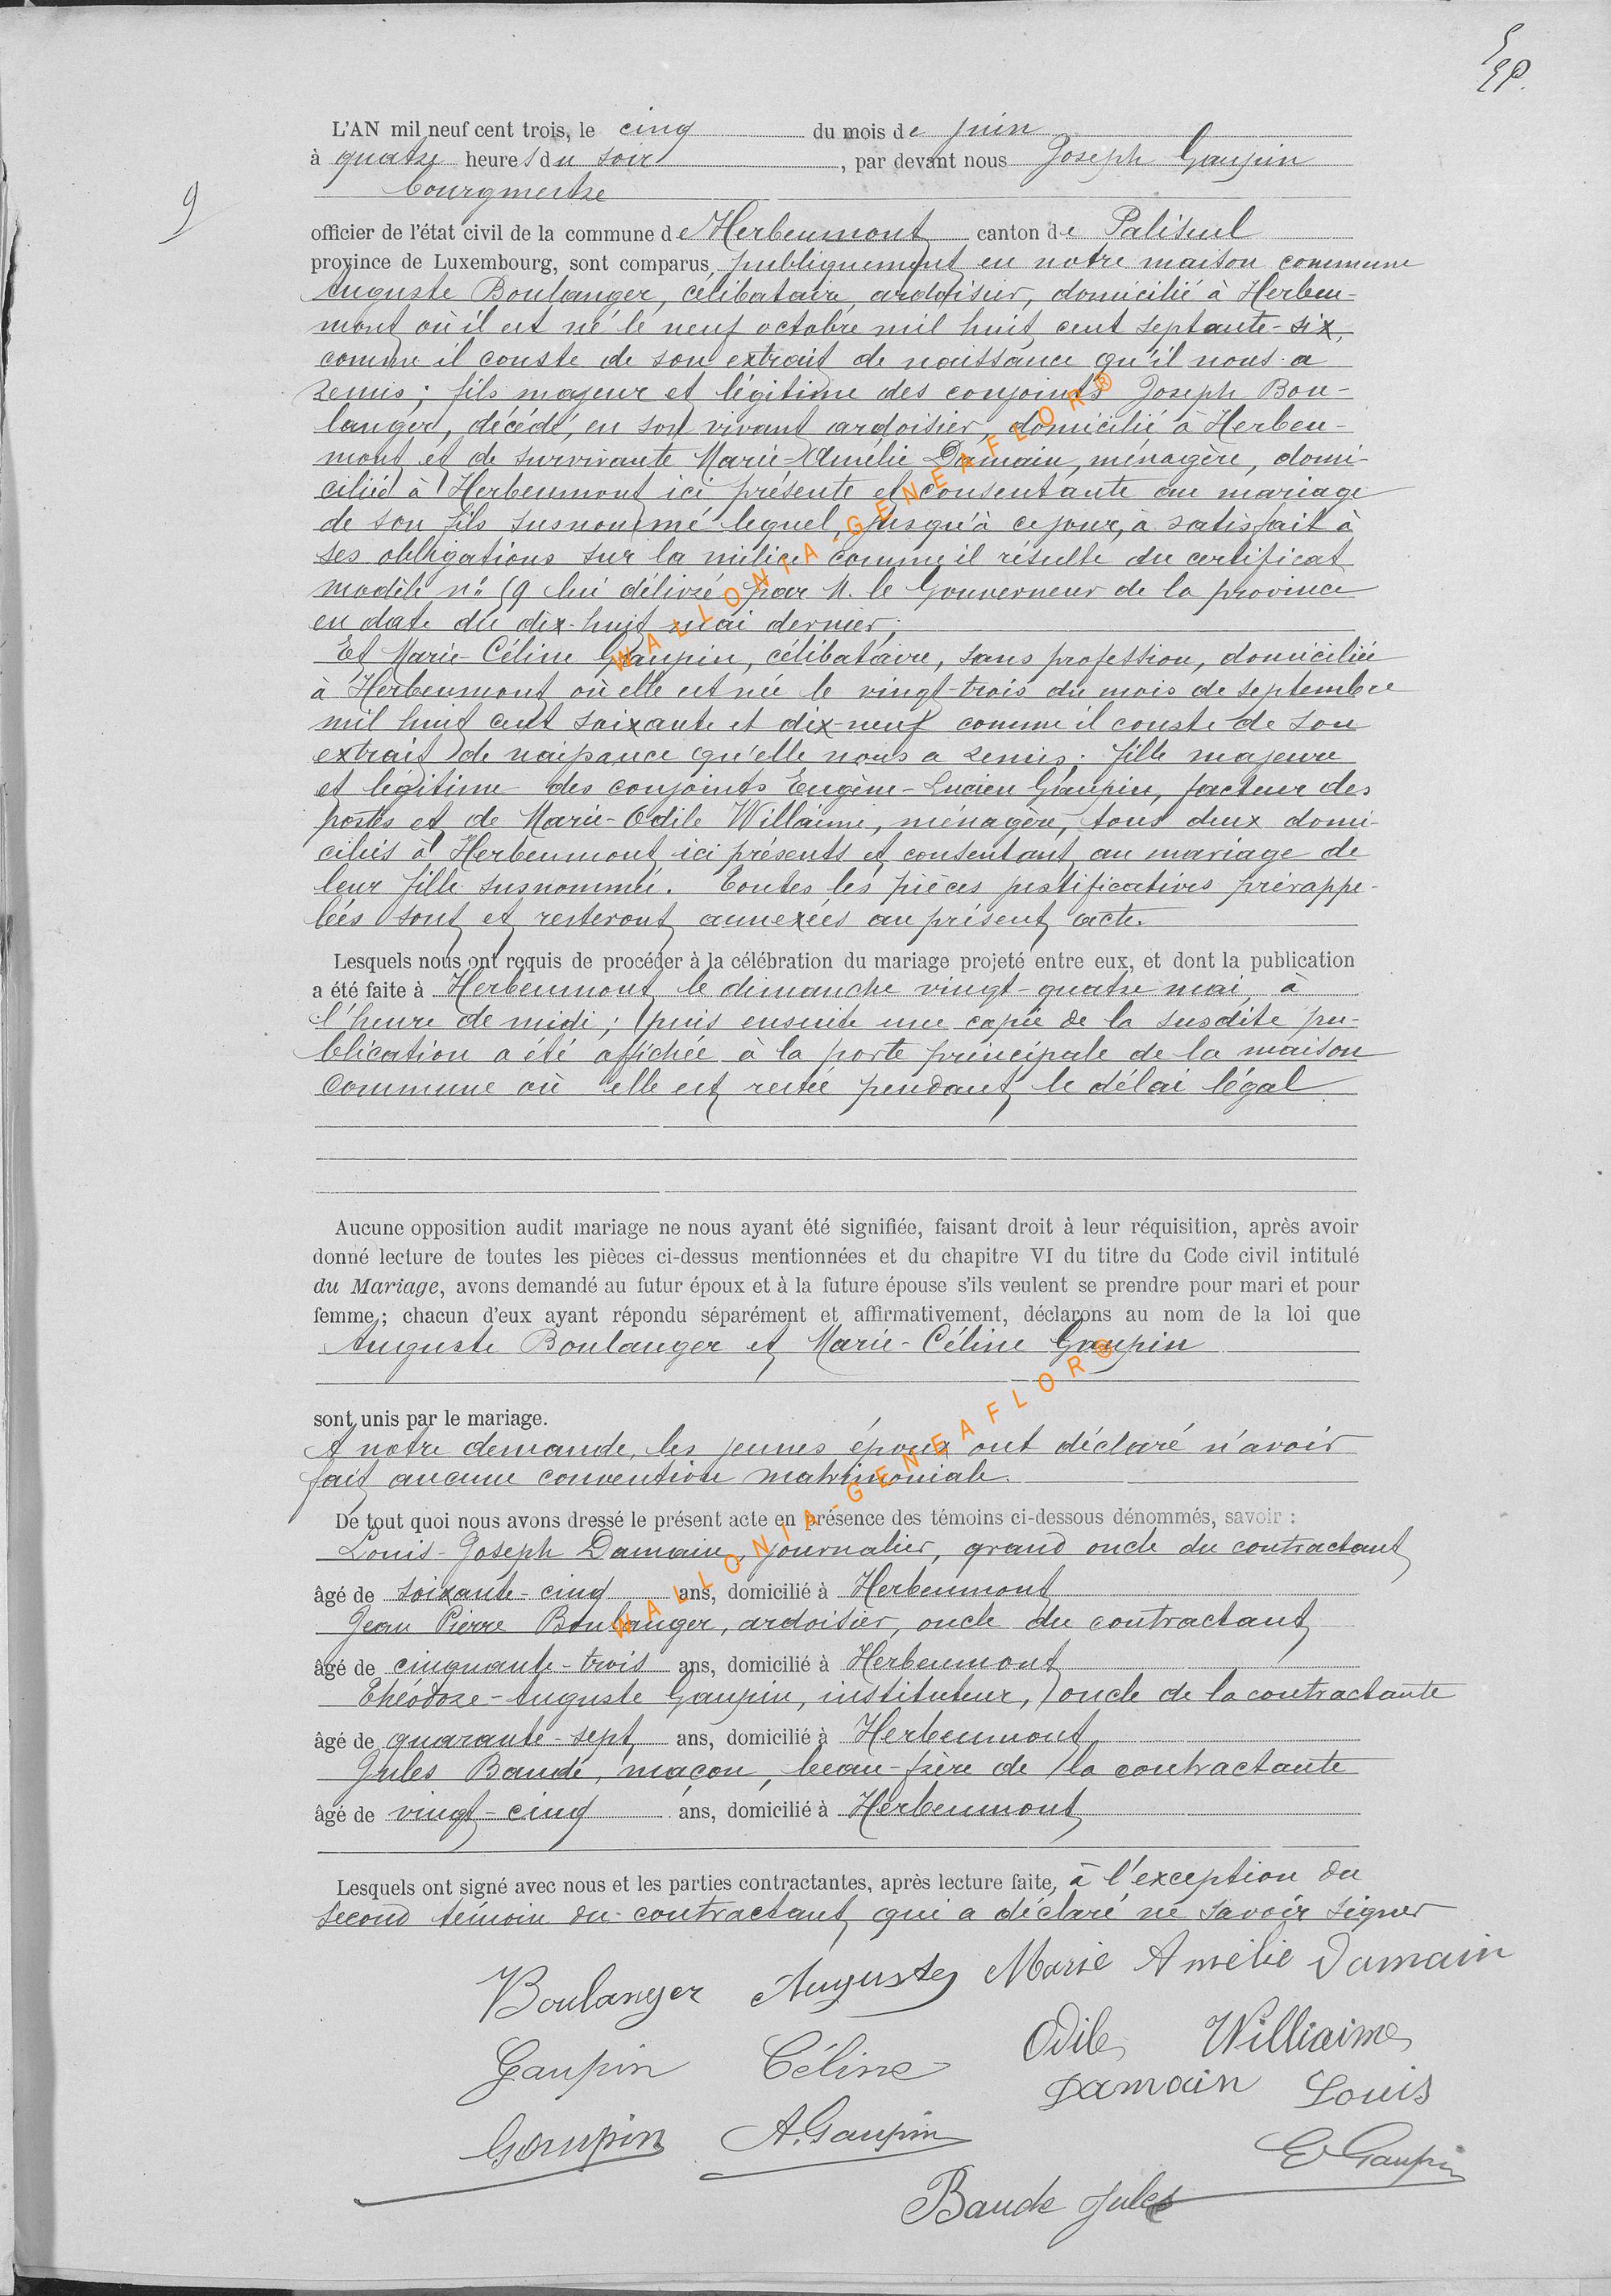 9
L'AN mil neuf cent trois, le cinq du mois de juin
à quatre heures du soir, par devant nous Joseph Gaupin
bourgmestre
officier de l'état civil de la commune de Herbeumont canton de Paliseul
province de Luxembourg, sont comparus publiquement en notre maison commune
Auguste Boulanger, célibataire, ardoisier, domicilié à Herbeu-
mont où il est né le neuf octobre mil huit cent septante-six,
comme il conste de son extrait de naissance qu'il nous a
remis; fils majeur et légitime des conjoints Joseph Bou-
langer, décédé, en son vivant ardoisier, domicilié à Herbeu-
mont et de survivante Marie-Amélie Damain, ménagère, domi-
ciliée à Herbeumont ici présente et consentante au mariage
de son fils susnommé lequel, jusqu'à ce jour, a satisfait à
ses obligations sur la milice comme il résulte du certificat
modèle n° 19 lui délivré par M. le Gouverneur de la province
en date du dix-huit mai dernier;
Et Marie-Céline Gaupin, célibataire, sans profession, domiciliée
à Herbeumont où elle est née le vingt-trois du mois de septembre
mil huit cent soixante et dix-neuf comme il conste de son
extrait de naissance qu'elle nous a remis; fille majeure
et légitime des conjoints Eugène-Lucien Gaupin, facteur des
postes et de Marie-Odile Willaime, ménagère, tous deux domi-
ciliés à Herbeumont ici présents et consentant au mariage de
leur fille susnommée. Toutes les pièces justificatives prérappe-
lées sont et resteront annexées au présent acte.
Lesquels nous ont requis de procéder à la célébration du mariage projeté entre eux, et dont la publication
a été faite à Herbeumont le dimanche vingt-quatre mai, à
l'heure de midi; puis ensuite une copie de la susdite pu-
blication a été affichée à la porte principale de la maison
Commune où elle est restée pendant le délai légal
Aucune opposition audit mariage ne nous ayant été signifiée, faisant droit à leur réquisition, après avoir
donné lecture de toutes les pièces ci-dessus mentionnées et du chapitre VI du titre du Code civil intitulé
du Mariage, avons demandé au futur époux et à la future épouse s'ils veulent se prendre pour mari et pour
femme; chacun d'eux ayant répondu séparément et affirmativement, déclarons au nom de la loi que
Auguste Boulanger et Marie-Céline Gaupin
sont unis par le mariage.
A notre demande, les jeunes époux ont déclaré n'avoir
fait aucune convention matrimoniale.
De tout quoi nous avons dressé le présent acte en présence des témoins ci-dessous dénommés, savoir :
Louis-Joseph Damain, journalier, grand oncle du contractant
âgé de soixante-cinq ans, domicilié à Herbeumont
Jean Pierre Boulanger, ardoisier, oncle du contractant
âgé de cinquante-trois ans, domicilié à Herbeumont
Théodore-Auguste Gaupin, instituteur, oncle de la contractante
âgé de quarante-sept ans, domicilié à Herbeumont
Jules Baudé, maçon, beau-frère de la contractante
âgé de vingt-cinq ans, domicilié à Herbeumont
Lesquels ont signé avec nous et les parties contractantes, après lecture faite, à l'exception du
second témoin du contractant qui a déclaré ne savoir signer
Boulanger Auguste Marie Amélie Damain
Gaupin Céline Odile Williaime
Damain Louis
Gaupin A. Gaupin E Gaupin
Baude Jules
WALLONIA-GENEAFLOR®
WALLONIA-GENEAFLOR®